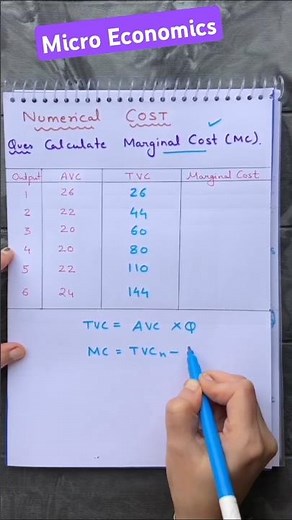 Micro Economics
Numerical COST
Ques Calculate Marginal Cost (MC).
Output AVC TVC Marginal Cost
1 26 26
2 22 44
3 20 60
4 20 80
5 22 110
6 24 144
TVC = AVC × Q
MC = TVCn -